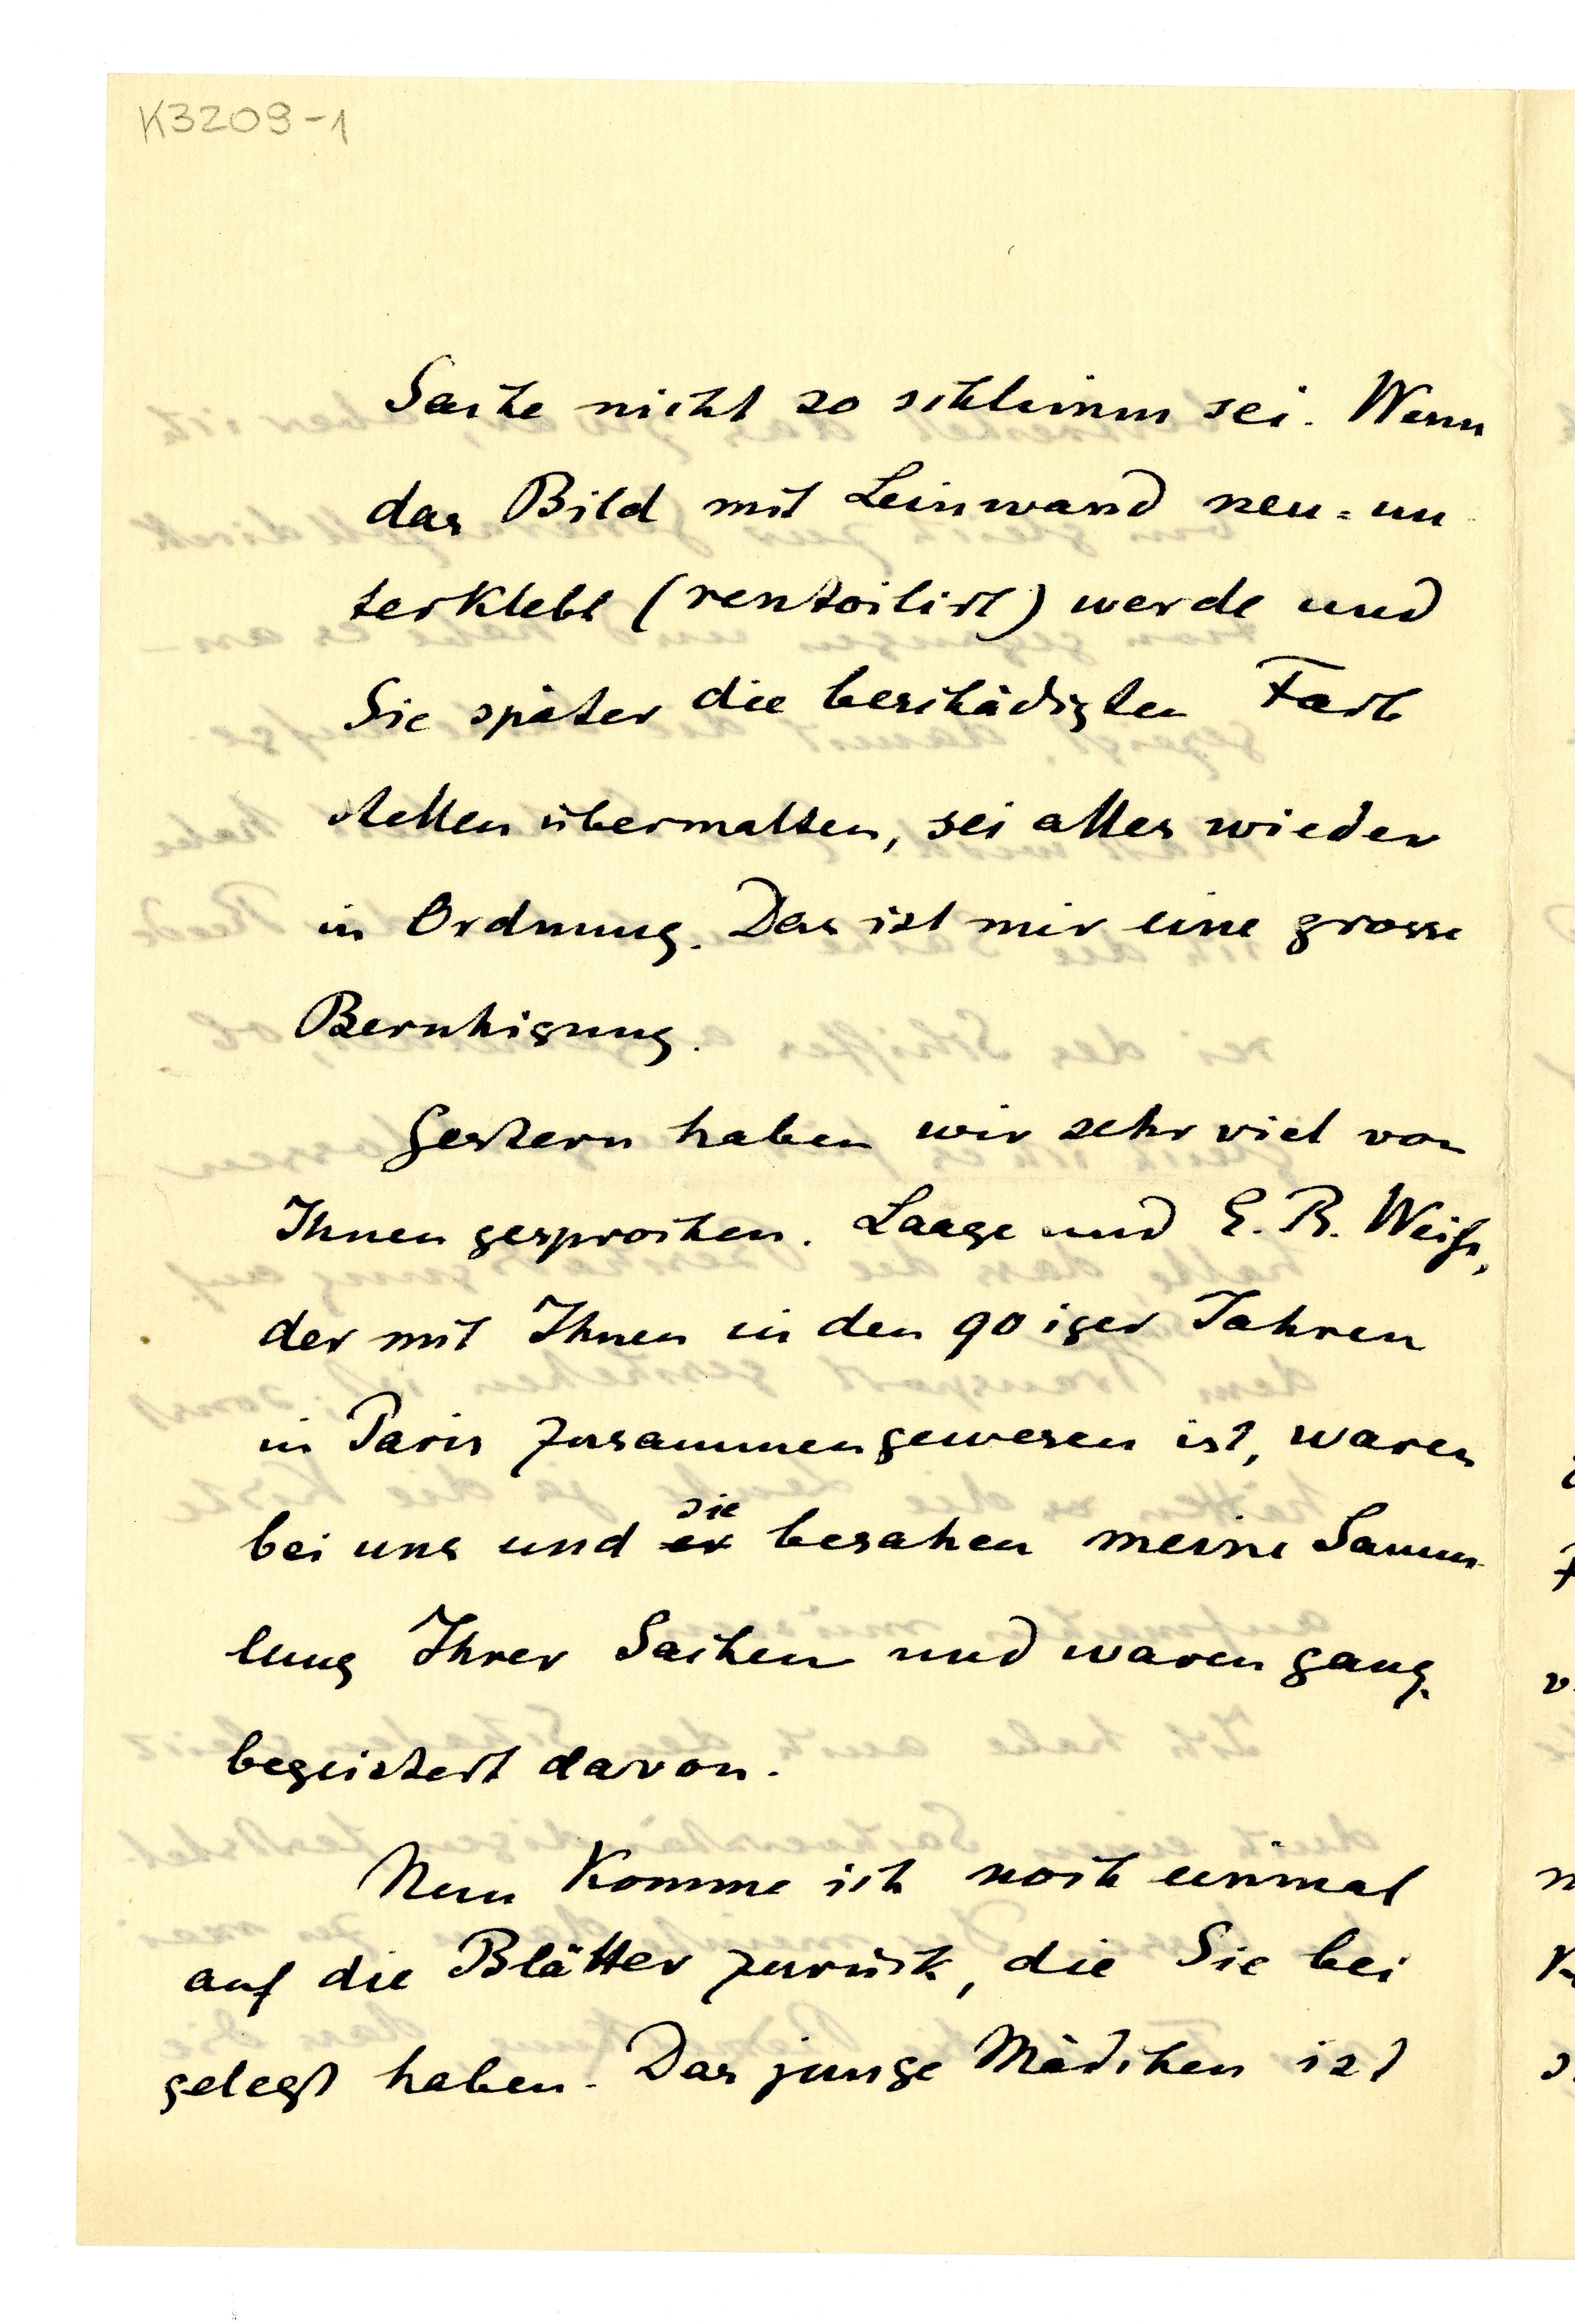 K3209-1
Sache nicht so schlimm sei. Wenn
das Bild mit Leinwand neu=un
terklebt (rentoilirt) werde und
Sie später die beschädigten Farb
stellen übermalten, sei alles wieder
in Ordnung. Das ist mir eine grosse
Beruhigung.
Gestern haben wir sehr viel von
Ihnen gesprochen. Laage und E. R. Weiß,
der mit Ihnen in den 90iger Jahren
in Paris zusammengewesen ist, waren
sie
bei uns und er besahen meine Samm
lung Ihrer Sachen und waren ganz
begeistert davon.
Nun komme ich noch einmal
auf die Blätter zurück, die Sie bei
gelegt haben. Das junge Mädchen ist